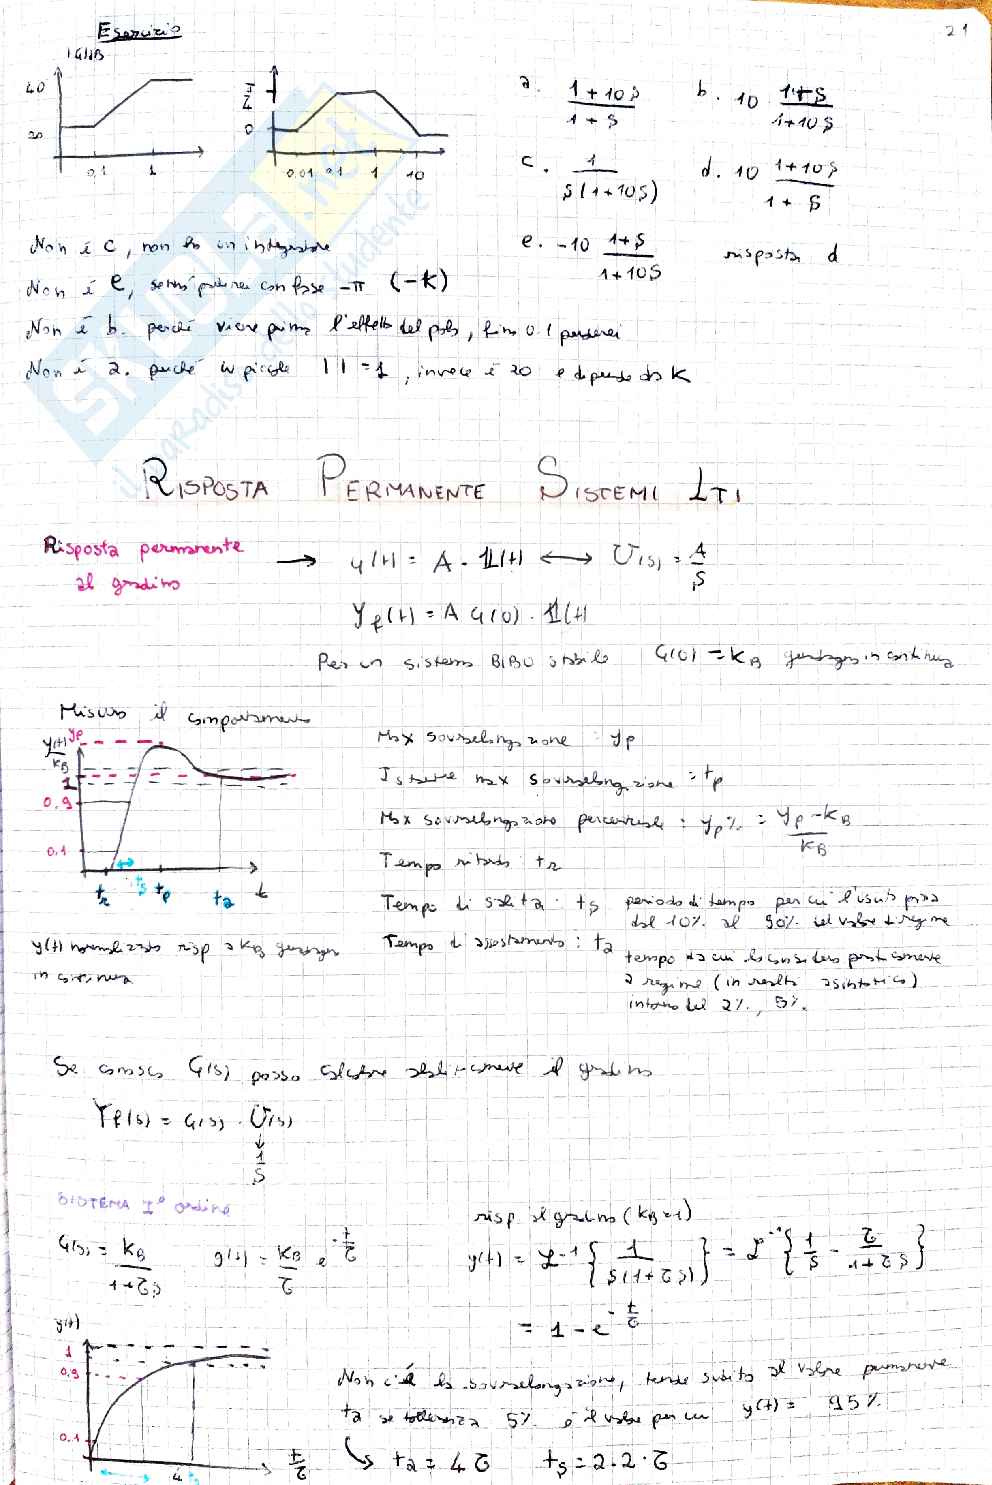 21
Esercizio
|G|dB
40
20
0,1 1
π/4
0
0,01 0,1 1 10
a. (1+10s)/(1+s)
b. 10 (1+s)/(1+10s)
c. 1/(s(1+10s))
d. 10 (1+10s)/(1+s)
e. -10 (1+s)/(1+10s) risposta d
Non è c, non ho un integratore
Non è e, sennò partirei con fase -π (-K)
Non è b. perché viene prima l'effetto del polo, fino 0.1 perderei
Non è a. perché in piccolo | | = 1, invece è 20 e dipende da K
SKUOLA.net
il paradiso dello studente
RISPOSTA PERMANENTE SISTEMI LTI
Risposta permanente
al gradino
→ u(t) = A · 1(t) ↔ U(s) = A/s
yf(t) = A G(0) · 1(t)
Per un sistema BIBO stabile G(0) = KB guadagno in continua
Misuro il comportamento
y(t)/KB
yp
1
0,9
0,1
tr ts tp ta t
y(t) normalizzato risp a KB guadagno
in continua
Max sovraelongazione : yp
Istante max sovraelongazione : tp
Max sovraelongazione percentuale : yp% = (yp - KB)/KB
Tempo ritardo : tr
Tempo di salita : ts periodo di tempo per cui l'uscita passa
dal 10% al 90% del valore di regime
Tempo di assestamento : ta tempo da cui lo considero praticamente
a regime (in realtà asintotico)
intorno del 2%, 5%.
Se conosco G(s) posso calcolare analiticamente il gradino
Yf(s) = G(s) · U(s)
↓
1/s
SISTEMA I° ordine
G(s) = KB/(1+τs) g(t) = KB/τ e^(-t/τ)
risp al gradino (KB=1)
y(t) = L⁻¹{1/(s(1+τs))} = L⁻¹{1/s - τ/(1+τs)}
= 1 - e^(-t/τ)
y(t)
1
0,9
0,1
4 t/τ
Non c'è la sovraelongazione, tende subito al valore permanente
ta se tolleranza 5% è il valore per cui y(t) = 95%
↳ ta = 4τ ts = 2.2·τ